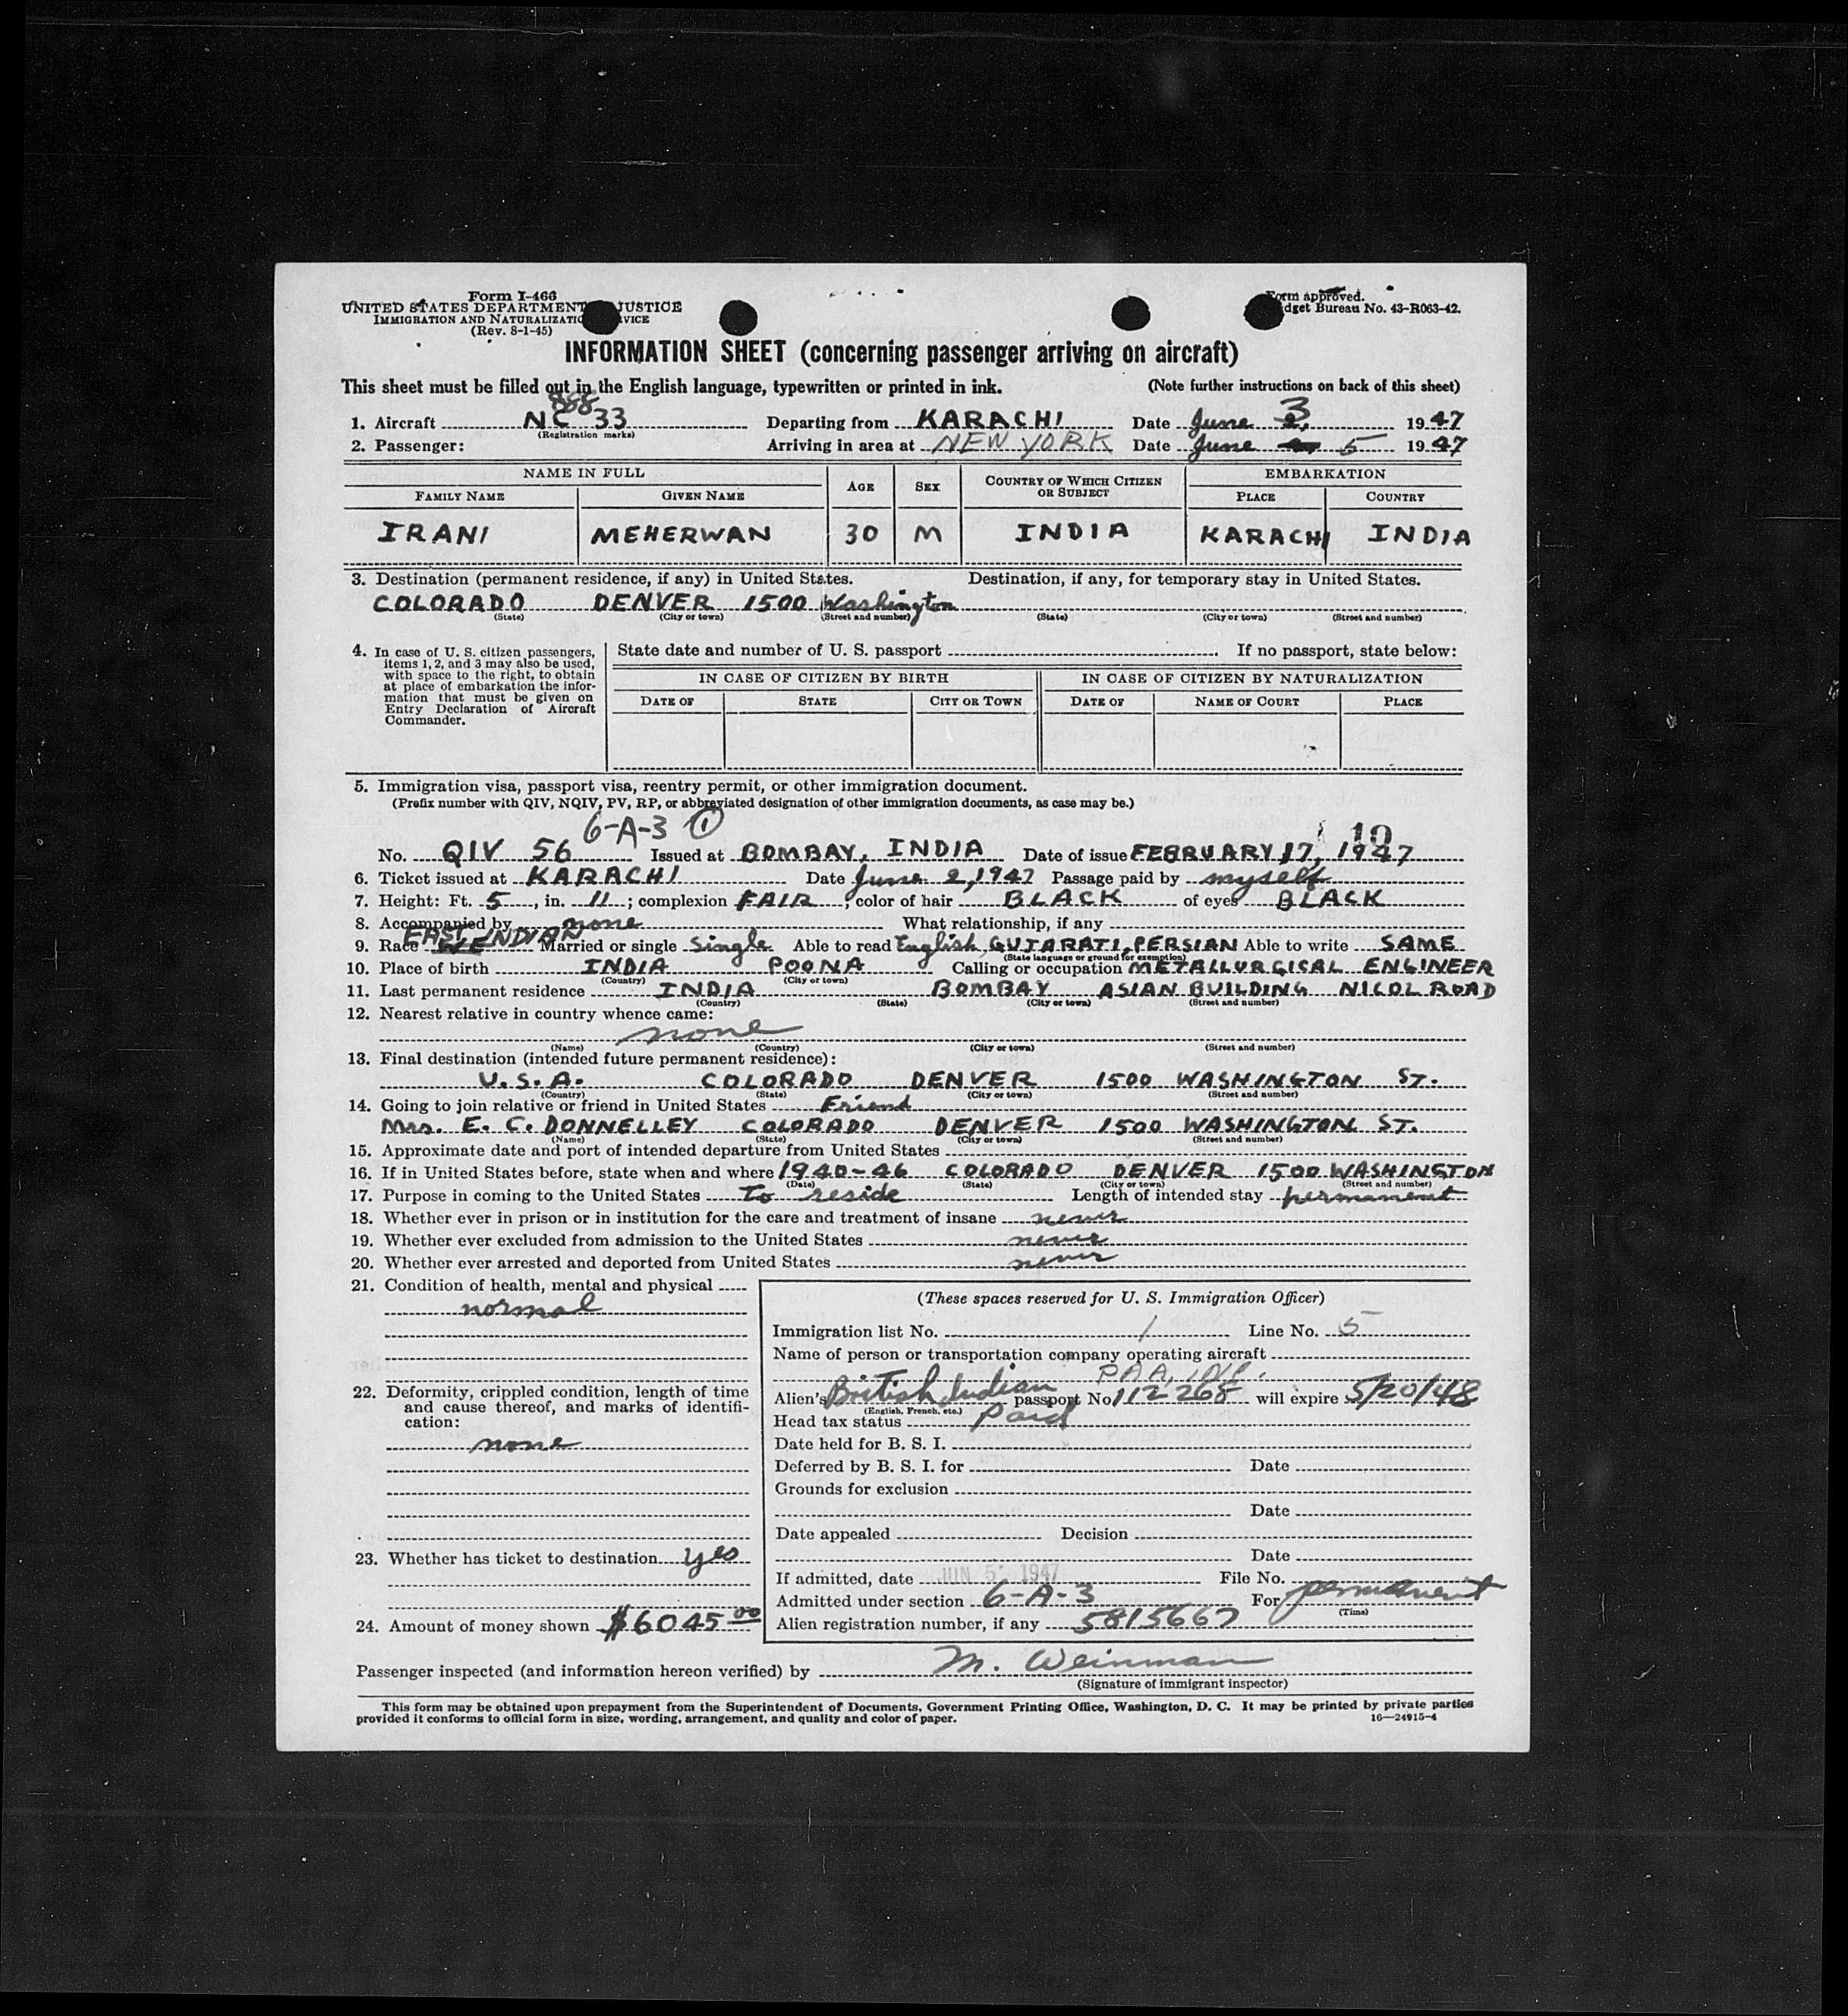 Form I-466
UNITED STATES DEPARTMENT JUSTICE
IMMIGRATION AND NATURALIZATIO VICE
(Rev. 8-1-45)
Form approved.
dget Bureau No. 43-R063-42.
INFORMATION SHEET (concerning passenger arriving on aircraft)
This sheet must be filled out in the English language, typewritten or printed in ink. (Note further instructions on back of this sheet)
888
1. Aircraft NC 33 Departing from KARACHI Date June 3 1947
(Registration marks)
2. Passenger: Arriving in area at NEW YORK Date June 5 1947
NAME IN FULL AGE SEX COUNTRY OF WHICH CITIZEN OR SUBJECT EMBARKATION
FAMILY NAME GIVEN NAME PLACE COUNTRY
IRANI MEHERWAN 30 M INDIA KARACHI INDIA
3. Destination (permanent residence, if any) in United States. Destination, if any, for temporary stay in United States.
COLORADO DENVER 1500 Washington
(State) (City or town) (Street and number) (State) (City or town) (Street and number)
4. In case of U. S. citizen passengers,
items 1, 2, and 3 may also be used,
with space to the right, to obtain
at place of embarkation the infor-
mation that must be given on
Entry Declaration of Aircraft
Commander.
State date and number of U. S. passport . If no passport, state below:
IN CASE OF CITIZEN BY BIRTH IN CASE OF CITIZEN BY NATURALIZATION
DATE OF STATE CITY OR TOWN DATE OF NAME OF COURT PLACE
5. Immigration visa, passport visa, reentry permit, or other immigration document.
(Prefix number with QIV, NQIV, PV, RP, or abbreviated designation of other immigration documents, as case may be.)
6-A-3 1 19
No. QIV 56 Issued at BOMBAY, INDIA Date of issue FEBRUARY 17, 1947
6. Ticket issued at KARACHI Date June 2, 1947 Passage paid by myself
7. Height: Ft. 5, in. 11; complexion FAIR; color of hair BLACK of eyes BLACK
8. Accompanied by none What relationship, if any
EAST INDIAN
9. Race Married or single Single Able to read English, GUJARATI, PERSIAN Able to write SAME
(State language or ground for exemption)
10. Place of birth INDIA POONA Calling or occupation METALLURGICAL ENGINEER
(Country) (City or town)
11. Last permanent residence INDIA BOMBAY ASIAN BUILDING NICOL ROAD
(Country) (State) (City or town) (Street and number)
12. Nearest relative in country whence came:
none
(Name) (Country) (City or town) (Street and number)
13. Final destination (intended future permanent residence):
U.S.A. COLORADO DENVER 1500 WASHINGTON ST.
(Country) (State) (City or town) (Street and number)
14. Going to join relative or friend in United States Friend
Mrs. E. C. DONNELLEY COLORADO DENVER 1500 WASHINGTON ST.
(Name) (State) (City or town) (Street and number)
15. Approximate date and port of intended departure from United States
16. If in United States before, state when and where 1940-46 COLORADO DENVER 1500 WASHINGTON
(Date) (State) (City or town) (Street and number)
17. Purpose in coming to the United States To reside Length of intended stay permanent
18. Whether ever in prison or in institution for the care and treatment of insane never
19. Whether ever excluded from admission to the United States never
20. Whether ever arrested and deported from United States never
21. Condition of health, mental and physical
normal
22. Deformity, crippled condition, length of time
and cause thereof, and marks of identifi-
cation:
none
23. Whether has ticket to destination yes
24. Amount of money shown $6045.00
(These spaces reserved for U. S. Immigration Officer)
Immigration list No. 1 Line No. 5
Name of person or transportation company operating aircraft
PAA,
Alien's British Indian passport No. 112268 will expire 5/20/48
(English, French, etc.)
Head tax status Paid
Date held for B. S. I.
Deferred by B. S. I. for Date
Grounds for exclusion
Date
Date appealed Decision
Date
If admitted, date JUN 5 1947 File No.
Admitted under section 6-A-3 For permanent
(Time)
Alien registration number, if any 5815667
Passenger inspected (and information hereon verified) by M. Weinman
(Signature of immigrant inspector)
This form may be obtained upon prepayment from the Superintendent of Documents, Government Printing Office, Washington, D. C. It may be printed by private parties
provided it conforms to official form in size, wording, arrangement, and quality and color of paper. 16—24915-4